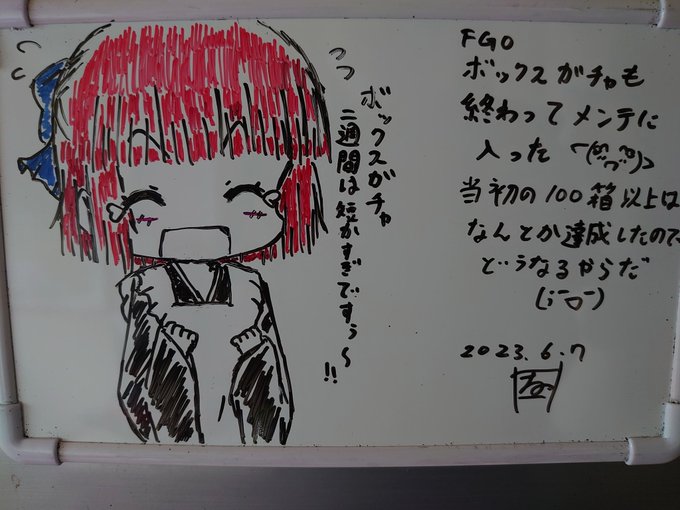 っっ
ボックスガチャ
二週間は短かすぎですぅ〜!!
FGO
ボックスガチャも
終わってメンテに
入った
当初の100箱以上は
なんとか達成したので
どうなるからだ
2023.6.7